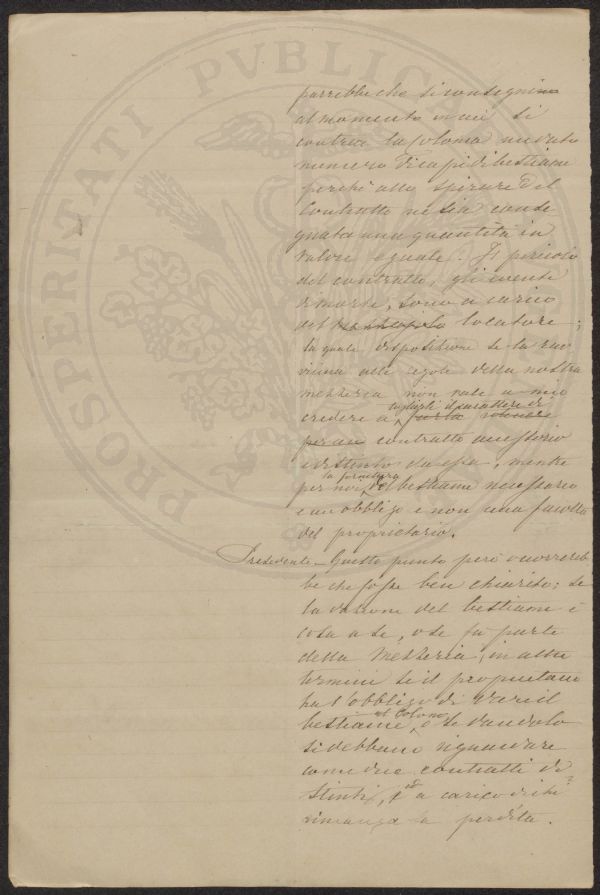 PROSPERITATI PVBLICAE
parrebbe che si consegnino
al momento in cui si
contrae la soloma un dato
numero di capi di bestiame
perchè allo spirare del
Contratto ne sia conse
gnata una quantità in
valore eguale. Il pericolo
del contratto, gli eventi
di morte, sono a carico
del locatore;
la quale disposizione se la ravvi
vicina alle regole della nostra
mezzeria non vale a mio
credere a togliergli il carattere di
per un contratto accessorio
e distinto da essa, mentre
per noi la fornitura del bestiame necessario
è un obbligo e non una facoltà
del proprietario.
Presidente - Questo punto però occorrereb
be che fosse ben chiarito; se
la dazione del bestiame è
cosa a se, o se fa parte
della mezzeria; in altri
termini se il proprietario
ha l'obbligo di dare il
bestiame al colono, o se dandolo
si debbano riguardare
come due contratti di
stinti, e a carico di chi
rimanga la perdita.